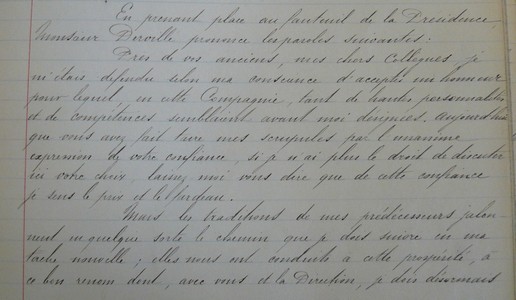 En prenant place au fauteuil de la Présidence,
Monsieur Derville prononce les paroles suivantes :
Près de vos anciens, mes chers Collègues, je
m'étais défendu selon ma conscience d'accepter un honneur
pour lequel, en cette Compagnie, tant de hautes personnalités
et de compétences semblaient avant moi désignées. Aujourd'hui
que vous avez fait taire mes scrupules par l'unanime
expression de votre confiance, si je n'ai plus le droit de discuter
ici votre choix, laissez moi vous dire que de cette confiance
je sens le prix et le fardeau.
Mais les traditions de mes prédécesseurs jalon-
nent en quelque sorte le chemin que je dois suivre en ma
tâche nouvelle ; elles nous ont conduits à cette prospérité, à
ce bon renom dont, avec vous et la Direction, je dois désormais